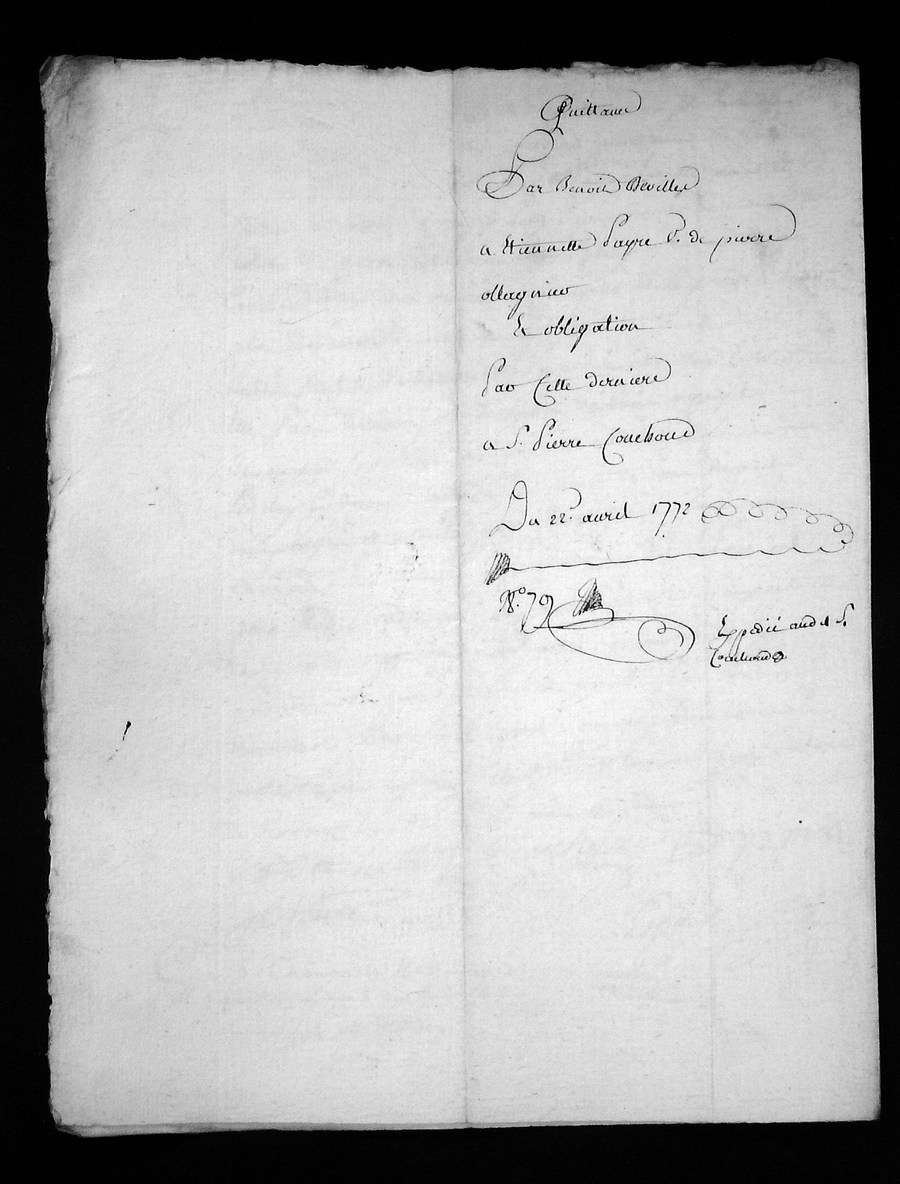 Quittance
Par Benoit Deville
a Etiennette Payre V.e de pierre
ollagnier
Et obligation
Par Cette derniere
a S.r Pierre Couchoud
Du 22.e avril 1772
N.o 79
Expedié aud. S.r
Couchoud